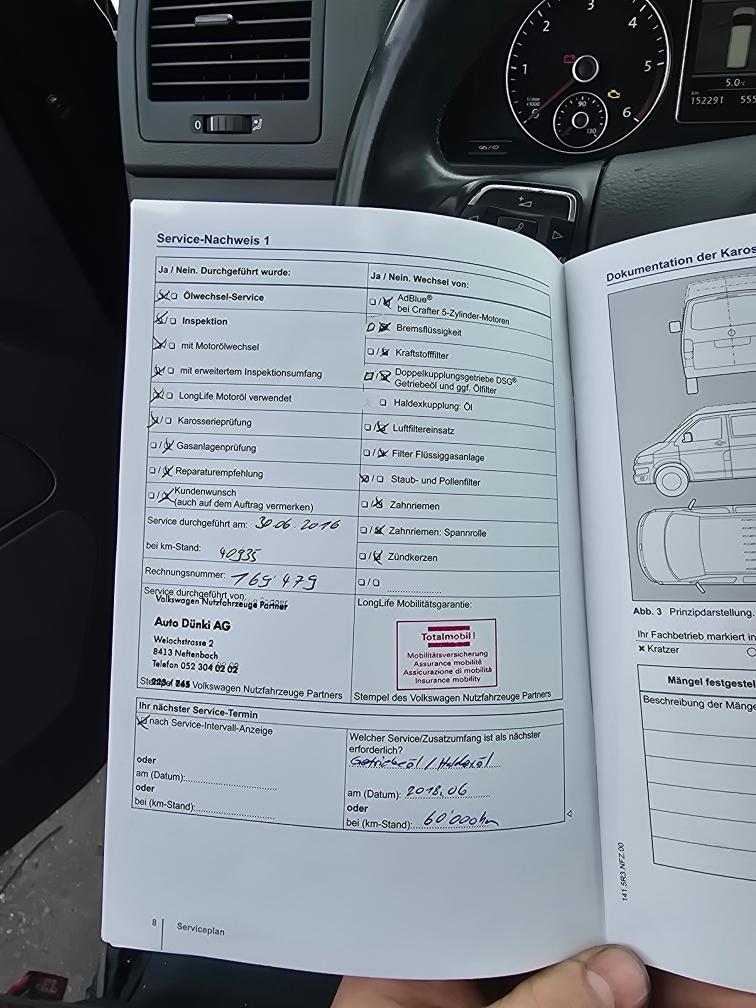 1
2
3
4
5
6
1/min
x1000
90
130
5.0
km
152291
555
0
Service-Nachweis 1
Ja / Nein. Durchgeführt wurde:
Ölwechsel-Service
Inspektion
mit Motorölwechsel
mit erweitertem Inspektionsumfang
LongLife Motoröl verwendet
Karosserieprüfung
Gasanlagenprüfung
Reparaturempfehlung
Kundenwunsch
(auch auf dem Auftrag vermerken)
Service durchgeführt am: 30.06.2016
bei km-Stand: 40935
Rechnungsnummer: 169'479
Service durchgeführt von:
Volkswagen Nutzfahrzeuge Partner
Auto Dünki AG
Weiachstrasse 2
8413 Neftenbach
Telefon 052 304 02 02
Volkswagen Nutzfahrzeuge Partners
Ja / Nein. Wechsel von:
AdBlue®
bei Crafter 5-Zylinder-Motoren
Bremsflüssigkeit
Kraftstofffilter
Doppelkupplungsgetriebe DSG®:
Getriebeöl und ggf. Ölfilter
Haldexkupplung: Öl
Luftfiltereinsatz
Filter Flüssiggasanlage
Staub- und Pollenfilter
Zahnriemen
Zahnriemen: Spannrolle
Zündkerzen
LongLife Mobilitätsgarantie:
Totalmobil!
Mobilitätsversicherung
Assurance mobilité
Assicurazione di mobilità
Insurance mobility
Stempel des Volkswagen Nutzfahrzeuge Partners
Ihr nächster Service-Termin
nach Service-Intervall-Anzeige
oder
am (Datum):
oder
bei (km-Stand):
Welcher Service/Zusatzumfang ist als nächster
erforderlich?
Getriebeöl / Haldexöl
am (Datum): 2018.06
oder
bei (km-Stand): 60'000km
8
Serviceplan
Dokumentation der Karos
Abb. 3 Prinzipdarstellung.
Ihr Fachbetrieb markiert in
× Kratzer
Mängel festgestel
Beschreibung der Mänge
141.5R3.NFZ.00